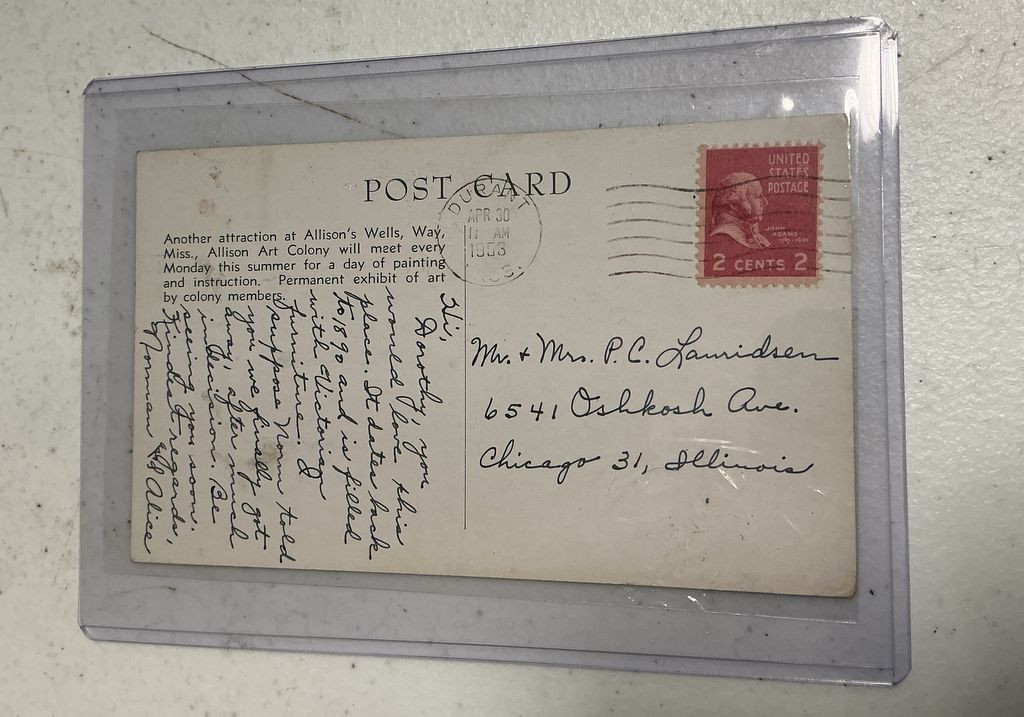 POST CARD
Another attraction at Allison's Wells, Way,
Miss., Allison Art Colony will meet every
Monday this summer for a day of painting
and instruction. Permanent exhibit of art
by colony members.
Hi,
Dorothy, you
would love this
place. It dates back
to 1890 and is filled
with Victorian
furniture. I
suppose Norm told
you we finally got
away, after much
indecision. Be
seeing you soon.
Kindest regards,
Norman & Alice
DURANT
APR 30
11 AM
1953
UNITED
STATES
POSTAGE
JOHN
ADAMS
1797-1801
2 CENTS 2
Mr. + Mrs. P.C. Lauridsen
6541 Oshkosh Ave.
Chicago 31, Illinois